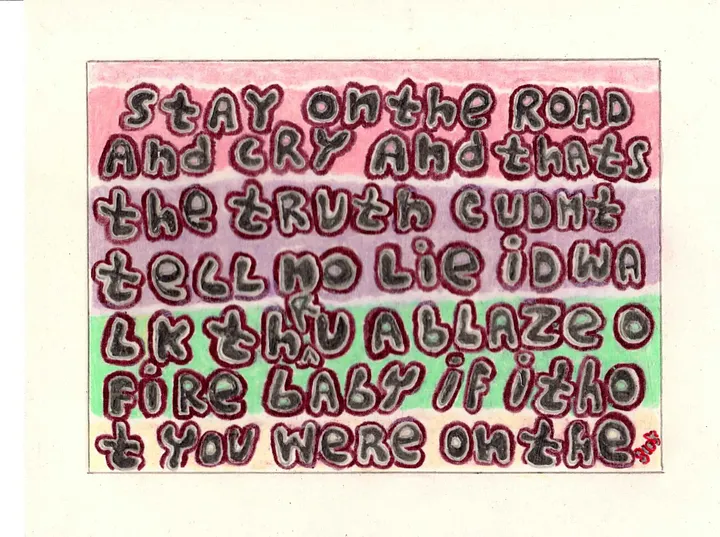 StAY ON the ROAD
And CRY And thAts
the tRUth CUDNt
teLL NO Lie iD WA
LK thRU A bLAZE O
FiRe bAbY iF i tho
t YOU WERE ON the